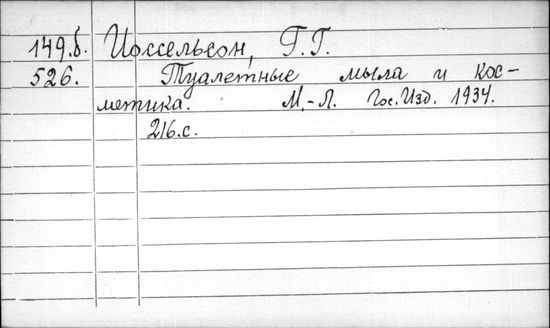 149.б. Иоссельсон, Г.Г.
526. Туалетные мыла и кос-
метика. М.-Л. Гос.Изд. 1934.
216.с.